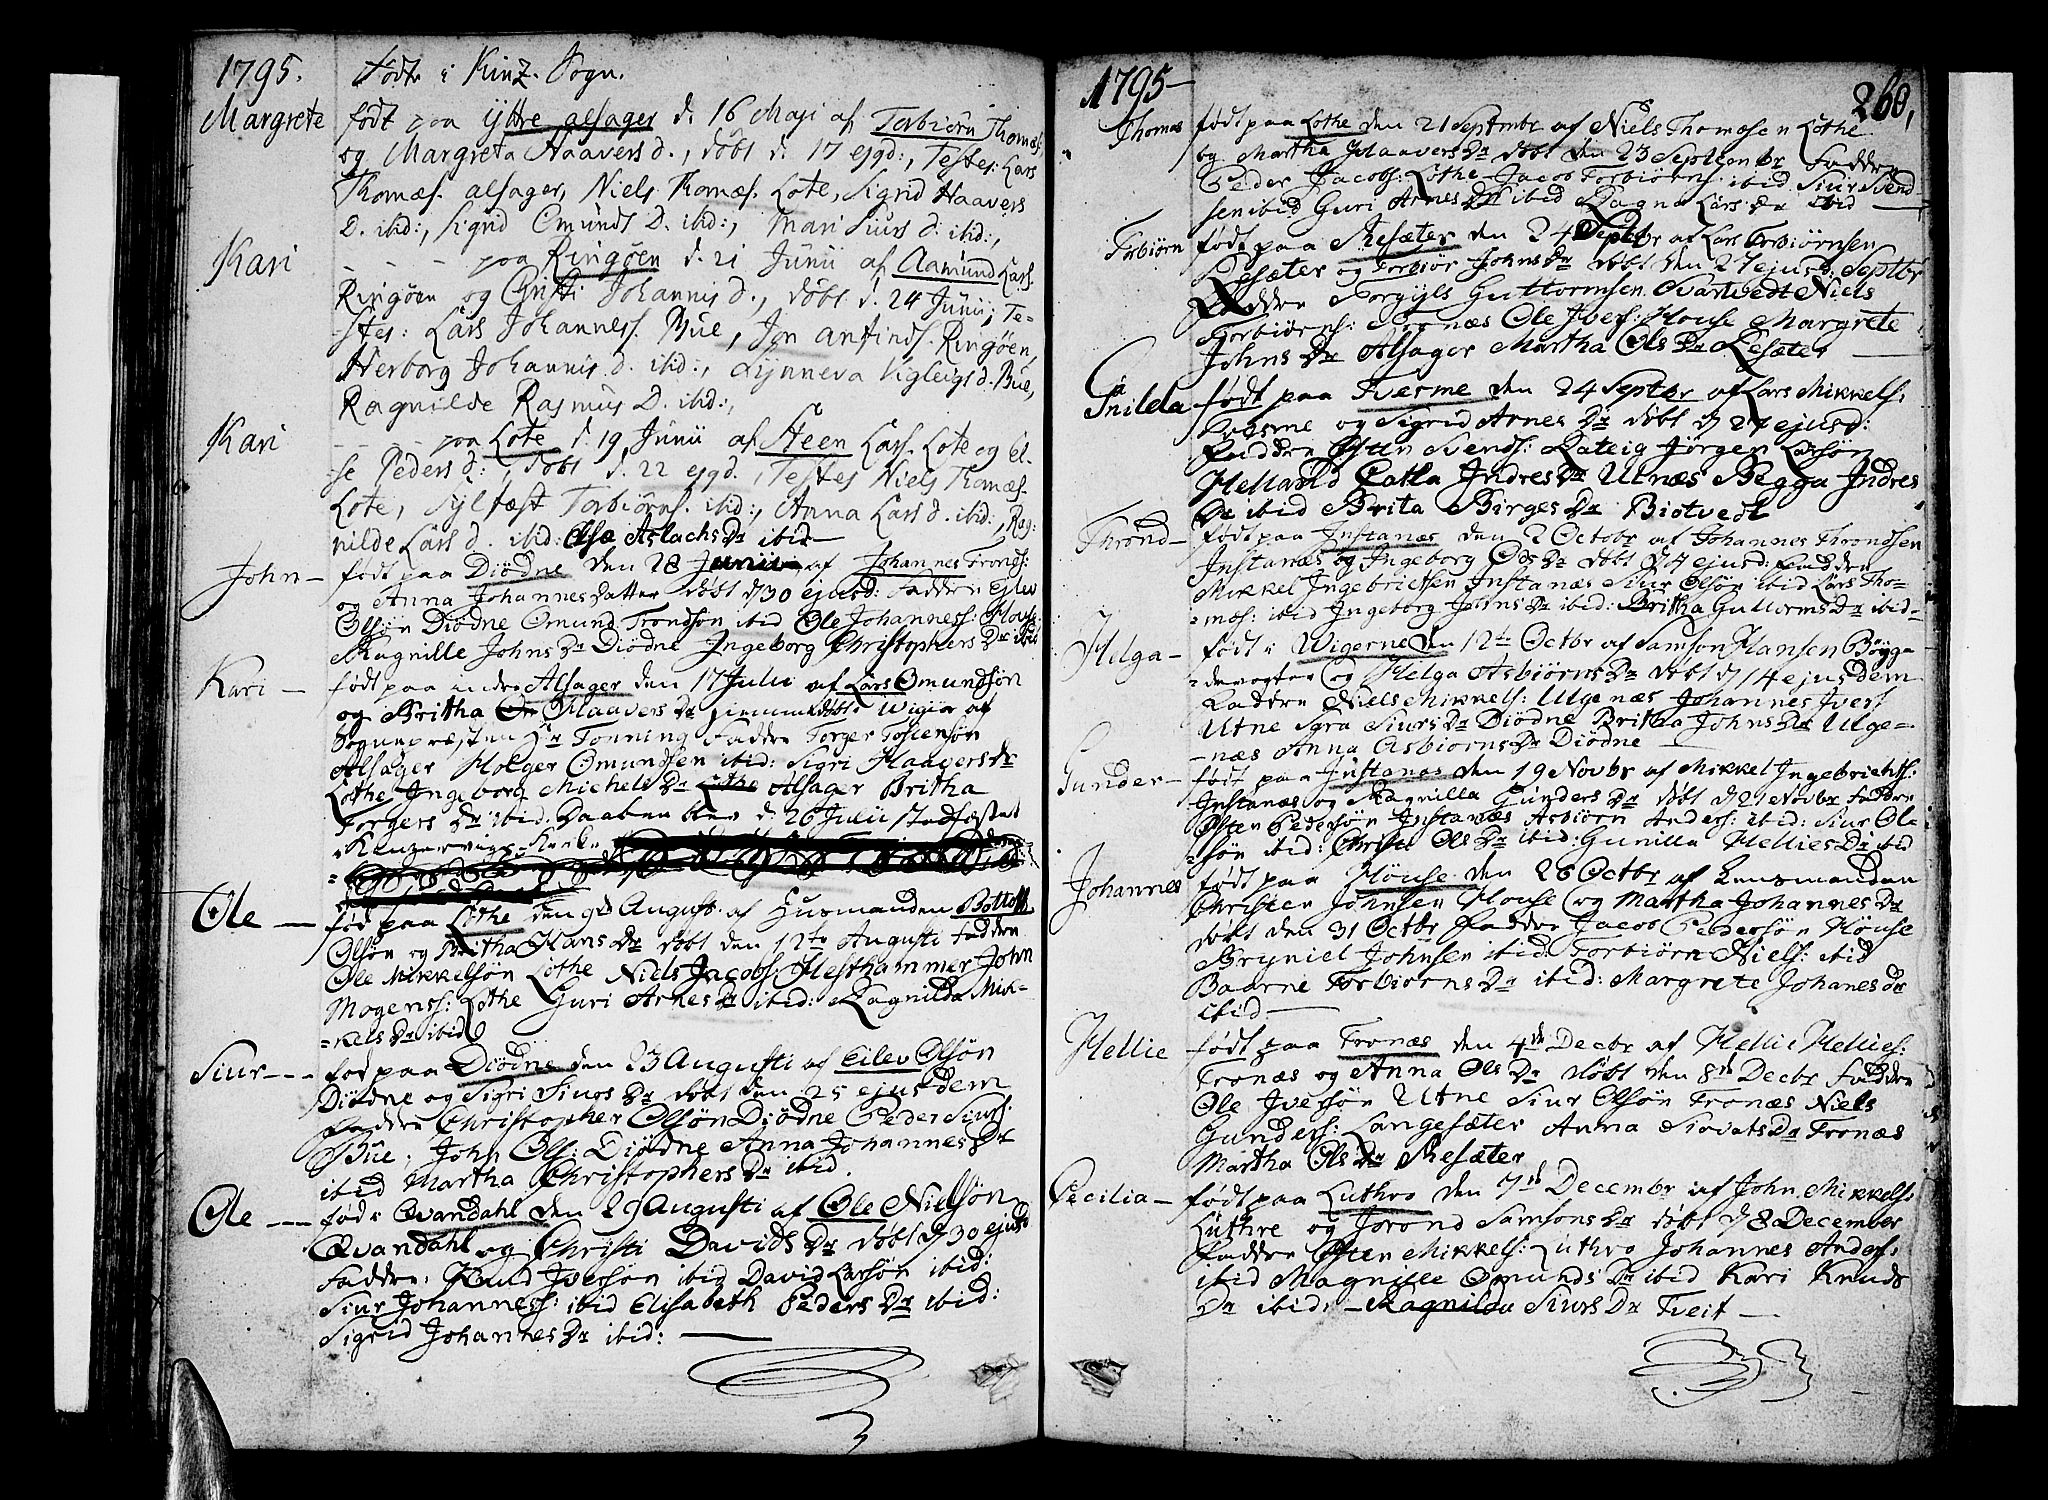 1795. Födte i Kinz. Sogn.
Margrete födt paa Ÿttre alsager d. 16 Maji af Torbiörn Thomæs.
og Margreta Haavers d., döbt d. 17 ejgd:, Testes: Lars
Thomæs. alsager, Niels Thomæs. Lote, Sigrid Haavers
D. ibid:, Sigrid Omunds D. ibid:, Mari Siurs d. ibid:,
Kari - - - paa Ringöen d. 21 Junii af Aamund Lars.
Ringöen og Christi Johannis d., döbt d. 24 Junii, Te-
-stes: Lars Johanness. Bue, Jon Anfinds. Ringöen,
Herborg Johannis d. ibid:, Lÿnneva Vigleigs d. Bue,
Ragnilde Rasmus D. ibid:,
Kari - - - - paa Lote d. 19 Junii af Steen Lars. Lote og El-
se Peders d:, döbt d. 22 ejgd., Testes Niels Thomæs.
Lote, Sylfæst Torbiörns. ibid:, Anna Lars d. ibid:, Rag:
nilde Lars d. ibid: Else Aslachs Dr ibid
John - födt paa Diödne den 28 Junii af Johannes Tronds:
og Anna Johannes datter döbt d 30 ejusd: Faddere Ejlev
Olsön Diödne Omund Trondsön ibid Ole Johanness: House
Magnille Johns Dr Diödne Ingeborg Christophers Dr ibid
Kari - födt paa indre Alsager den 17 Julii af Lars Omundsön
og Britha Haavers Dr hiemmedöbt Wigia af
Sognepræsten Hr Tonning Faddre Torger Tostensön
Alsager Holger Omundsen ibid: Sigri Haagers dr
Lothe Ingeborg Michels Dr Alsager Britha
Torgers Dr ibid. Daaben blev d. 26 Julii stadfæstet
i Kinzervigs Kirke
Ole - föd paa Lothe den 9de August. af Husmanden Bottolf
Olsön og Britha Hans Dr döbt den 12te Augusti Faddre
Ole Mikkelsön Lothe Niels Jacobs: Hesthammer John
Mogenss: Lothe Guri Arnes Dr ibid: Ragnilda Mik-
=kels Dr ibid
Siur - - - föd paa Diödne den 23 Augusti af Eilev Olsön
Diödne og Sigri Siurs Dr döbt den 25 ejusdem
Faddre Christopher Olsön Diödne Peder Siurs:
Büe. John Ols: Diödne Anna Johannes Dr
ibid Martha Christophers Dr ibid.
Ole - - - föd i Qvandahl den 29 Augusti af Ole Nielsön
Qvandahl og Christi Davids Dr döbt d 30 ejusd
Faddre: Knud Iversön ibid David Larsön ibid:
Siur Johanness: ibid Elisabeth Peders Dr ibid:
Sigrid Johannes Dr ibid:
1795 - 260,
Thomas födt paa Lothe den 21 Septmbr af Niels Thomæsen Lothe
og Martha Haavers Dr döbt den 23 Septembr Faddre
Peder Jacobs: Lothe Jacob Torbiörns: ibid Siur Svend-
sen ibid Guri Arnes Dr ibid Ragna Lars Dr ibid
Torbiörn födt paa Resæter den 24 Septbr af Lars Torbiörnsen
Resæter og Torbiör Johns Dr döbt den 27 ejusd: Septbr
Faddre Torgyls Guttormsen Qvartvedt Niels
Torbiörns: Tronæs Ole Ivers: House Margrete
Johns Dr Alsager Martha Ols Dr Resæter
Gunilda födt paa Tvesme den 24 Septbr af Lars Mikkels:
Tvesme og Sigrid Arnes Dr döbt d 27 ejusd:
Faddre Östen Svends: Rateig Jörgen Larsön
Helland Catla Indres Dr Utnæs Begga Indres
Dr ibid Brita Birges Dr Biotvedt
Thrond - födt paa Instanæs den 2 Octobr af Johannes Throndsen
Instanæs og Ingeborg Ols Dr döbt d 4 ejusd: Faddre
Mikkel Ingebrictsen Instanæs Siur Olsön ibid Lars Tho-
=mæs: ibid Ingeborg Johns Dr ibid: Britha Guttorms Dr ibid-
Helga - födt i Wigerne den 12te Octbr af Samson Hansen Böyga
=devogter og Helga Asbiörns Dr döbt d 14 ejusdem
Faddre Niels Mikkels: Ulgenæs Johannes Ivers
Utne Sgra Siurs Dr Diödne Britha Johns Dr Ulge-
-næs Anna Asbiorns Dr Diödne
Gunder - födt paa Instanæs den 19 Novbr af Mikkel Ingebrichts:
Instanæs og Magnilla Gunders Dr döbt d 21 Novbr Faddre
Östen Pedersön Instanæs Asbiörn Anders: ibid: Siur Ole
=sön ibid: Christi Ols Dr ibid: Gunilla Hellies Dr ibid
Johannes födt paa House den 26 Octbr af Lensmanden
Christen Johnsen House og Martha Johannes Dr
döbt den 31 Octbr Faddre Jacob Pedersön House
Bryniel Johnsen ibid: Torbiörn Niels: ibid
Baarne Torbiorns Dr ibid: Margrete Johanes Dr
ibid
Hellie födt paa Tronæs den 4de Decbr af Hellie Hellies:
Tronæs og Anna Ols Dr döbt den 8de Decbr Faddre
Ole Iversön Utne Siur Olsön Tronæs Niels
Gunders: Langesæter Anna Siovats Dr Tronæs
Martha Ols Dr Resæter
Cecilia - födt paa Luthro den 7de Decembr af John Mikkels:
Luthre og Jorond Samsons Dr döbt d 8 December
Faddre Östen Mikkels: Luthro Johannes Anders:
ibid Magnille Omunds Dr ibid Kari Knuds
Dr ibid: - Ragnilda Siurs Dr Tveit -